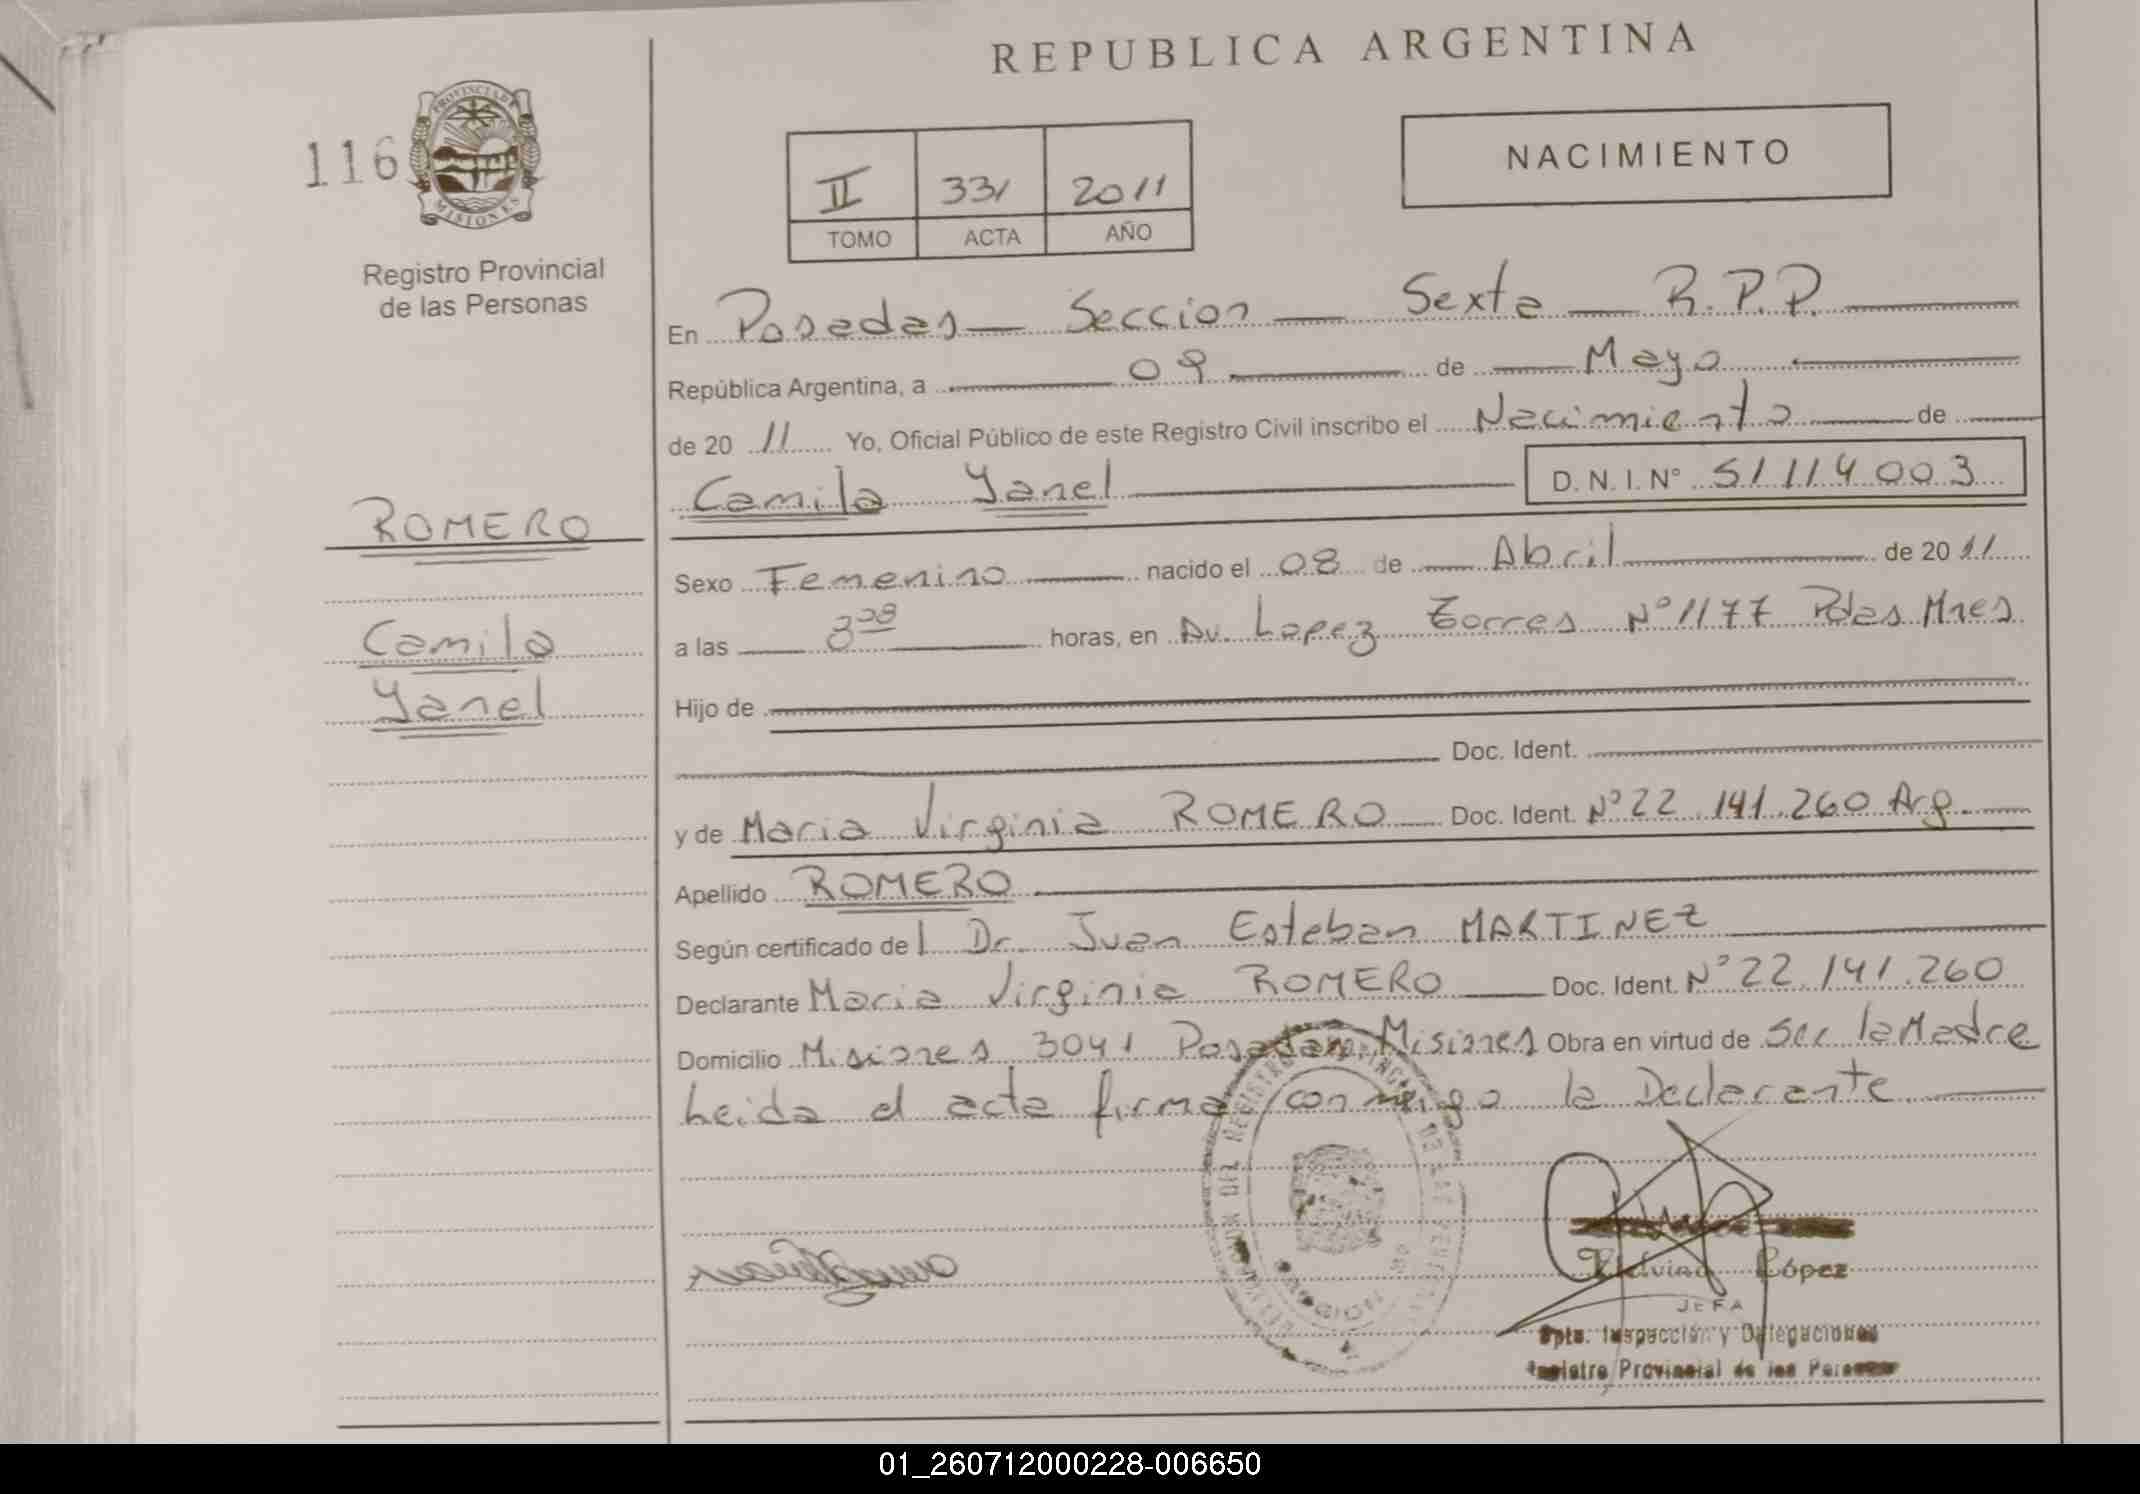 REPUBLICA ARGENTINA
116
PROVINCIA DE
MISIONES
Registro Provincial
de las Personas
II 331 2011
TOMO ACTA AÑO
NACIMIENTO
En Posadas Seccion Sexta R.P.P.
República Argentina, a 09 de Mayo
de 20 11 Yo, Oficial Público de este Registro Civil inscribo el Nacimiento de
Camila Yanel D. N. I. N° 51114003
ROMERO
Camila
Yanel
Sexo Femenino nacido el 08 de Abril de 20 11
a las 8 horas, en Av. Lopez Torres N° 1177 Pdas Mnes
Hijo de
Doc. Ident.
y de Maria Virginia ROMERO Doc. Ident. N° 22.141.260 Arg.
Apellido ROMERO
Según certificado del Dr. Juan Esteban MARTINEZ
Declarante Maria Virginia ROMERO Doc. Ident. N° 22.141.260
Domicilio Misiones 3041 Posadas Misiones Obra en virtud de Ser la Madre
Leida el acta firma conmigo la Declarante
López
JEFA
Dpto. Inspección y Delegaciones
Registro Provincial de las Personas
01_260712000228-006650